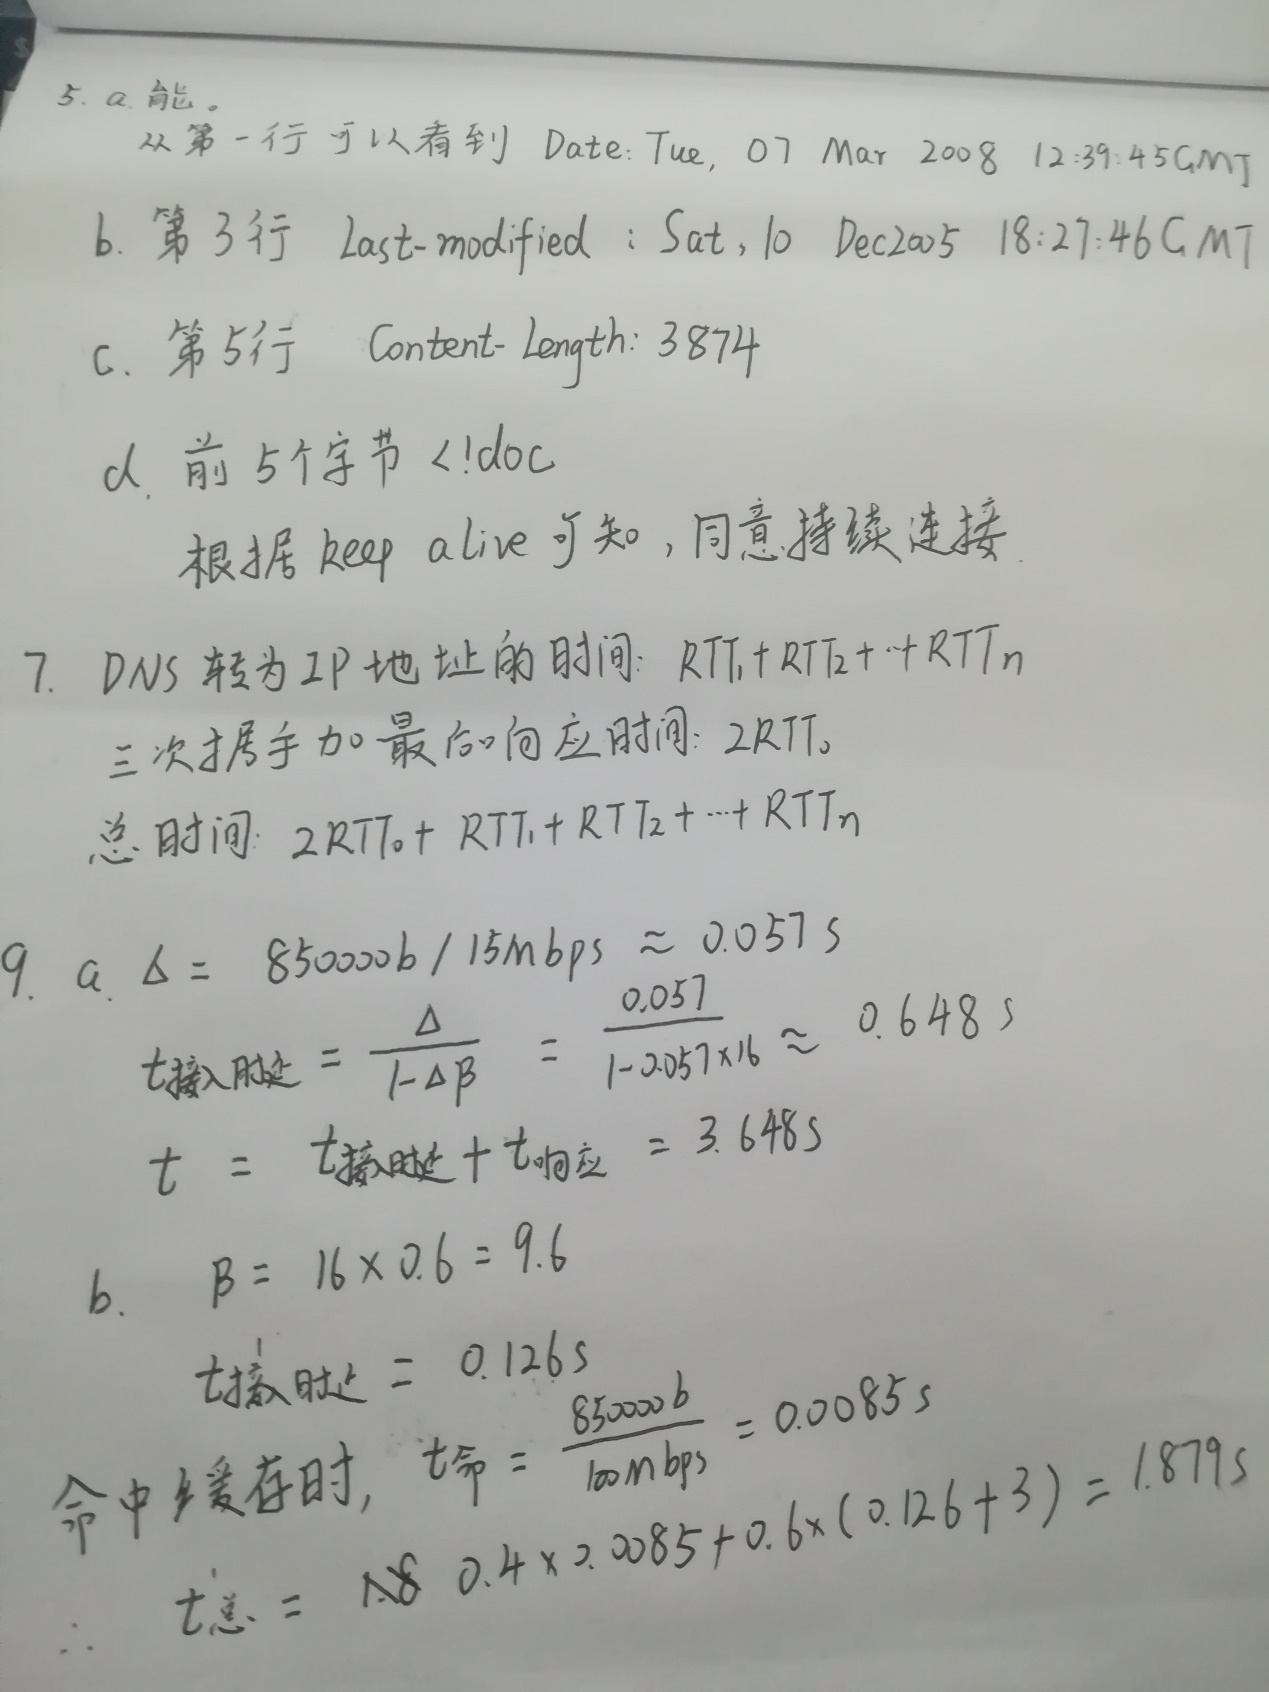 5. a. 能。
从第一行可以看到 Date: Tue, 07 Mar 2008 12:39:45GMT
b. 第3行 Last-modified : Sat, 10 Dec2005 18:27:46GMT
c. 第5行 Content-Length: 3874
d. 前5个字节 <!doc
根据keep alive可知,同意持续连接.
7. DNS转为IP地址的时间: RTT₁+RTT₂+…+RTTn
三次握手加最后响应时间: 2RTT₀
总时间: 2RTT₀+RTT₁+RTT₂+…+RTTn
9. a. Δ = 850000b/15mbps ≈ 0.057s
t接入时延 = Δ/(1-Δβ) = 0.057/(1-0.057×16) ≈ 0.648s
t = t接入时延 + t响应 = 3.648s
b. β = 16×0.6 = 9.6
t'接入时延 = 0.126s
命中缓存时, t命 = 850000b/100mbps = 0.0085s
∴ t'总 = 0.4×0.0085+0.6×(0.126+3) = 1.879s